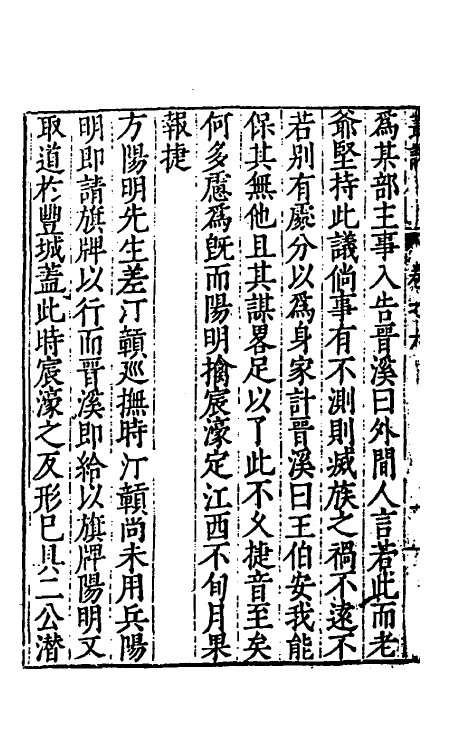 為其部主事入告晉溪曰外間人言若此而老
爺堅持此議倘事有不測則滅族之禍不遠不
若別有處分以為身家計晉溪曰王伯安我能
保其無他且其謀畧足以了此不久捷音至矣
何多慮為旣而陽明擒宸濠定江西不旬月果
報捷
方陽明先生差汀贑廵撫時汀贑尚未用兵陽
明即請旗牌以行而晉溪即給以旗牌陽明又
取道於豐城蓋此時宸濠之反形已具二公潜